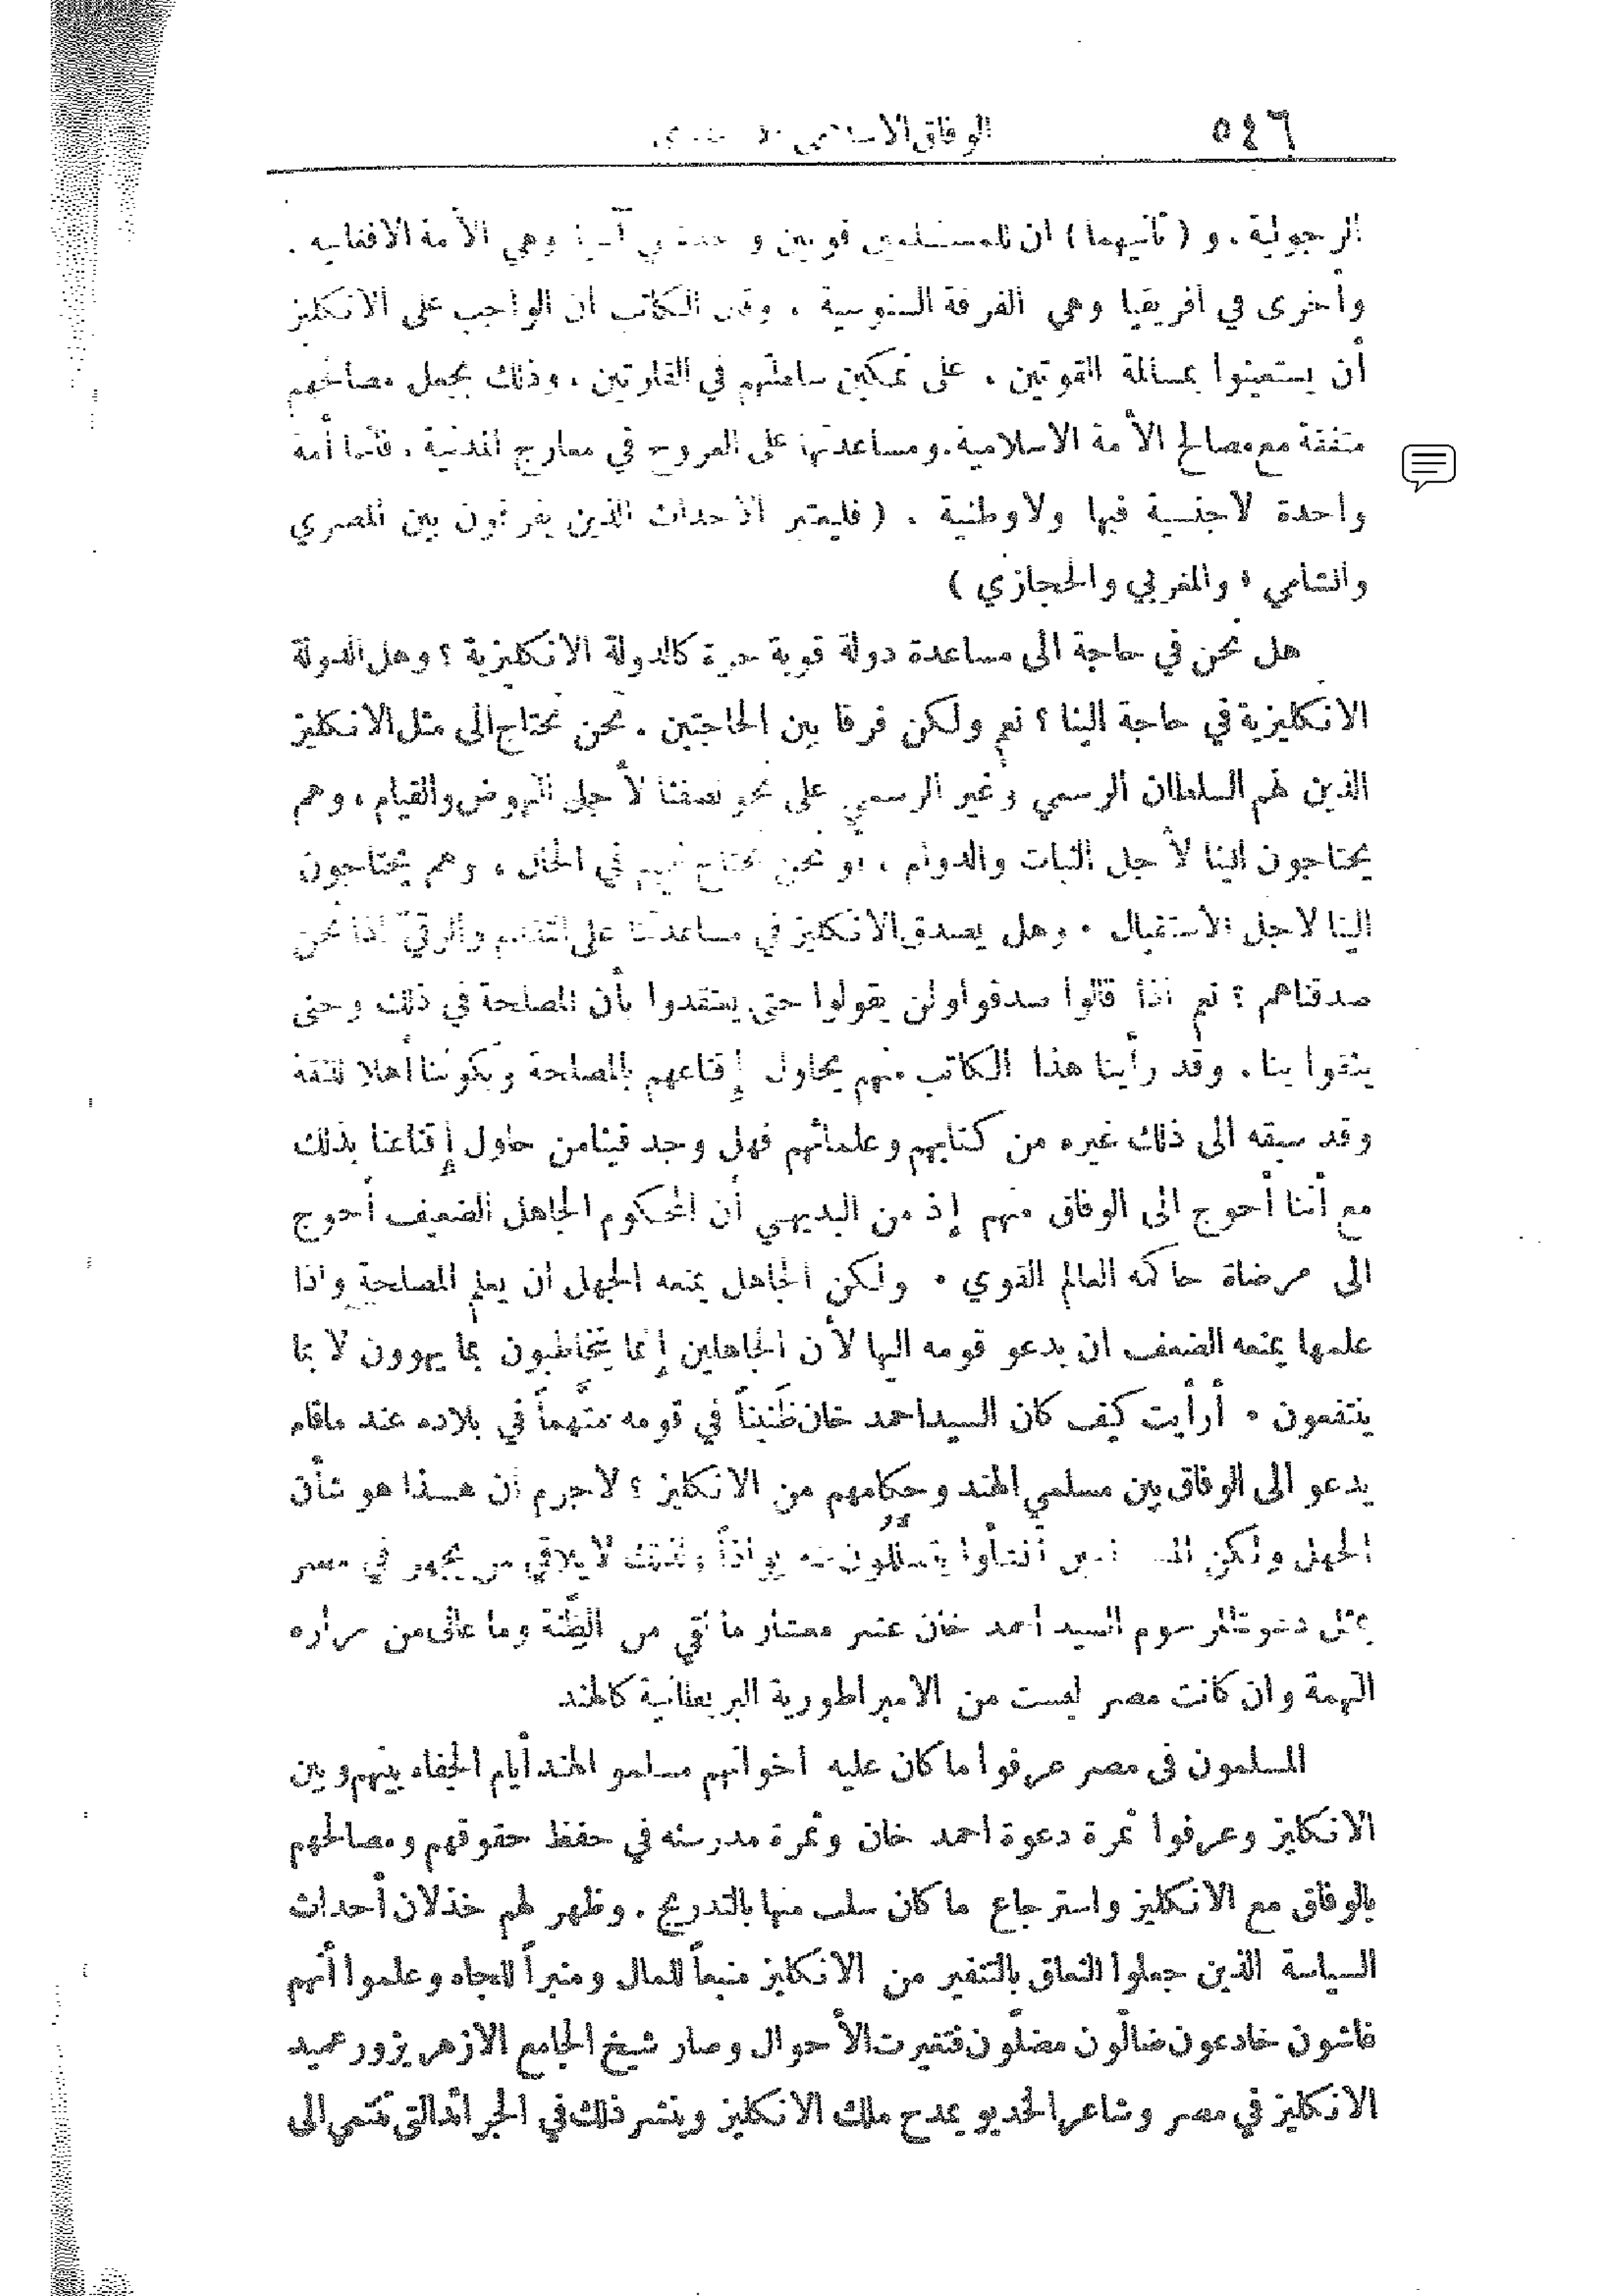 ٥٤٦ الوفاق الاسلامي
الرجولية . و ( ثانيهما ) ان للمسلمين قوتين وهي الأمة الافغانية .
وأخرى في أفريقيا وهي الفرقة السنوسية . الكاتب أن الواجب على الانكليز
أن يستعينوا بمسالمة القوتين . على تمكين سلطتهم في القارتين . وذلك بجعل مصالحهم
متفقة مع مصالح الأمة الاسلامية . ومساعدتها على العروج في معارج المدنية . فانها أمة
واحدة لا جنسية فيها ولا وطنية . ( فليعتبر الأحداث الذين يفرقون بين المصري
والشامي ، والمغربي والحجازي )
هل نحن في حاجة الى مساعدة دولة قوية حرة كالدولة الانكليزية ؟ وهل الدولة
الانكليزية في حاجة الينا ؟ نعم ولكن فرقا بين الحاجتين . نحن نحتاج الى مثل الانكليز
الذين لهم السلطان الرسمي وغير الرسمي على نحو نصفنا لأجل النهوض والقيام ، وهم
يحتاجون الينا لأجل الثبات والدوام ، أو نحن نحتاج اليهم في الحال ، وهم يحتاجون
الينا لاجل الاستقبال . وهل يصدق الانكليز في مساعدتنا على التقدم والرقيّ اذا نحن
صدقناهم ؟ نعم اذا قالوا صدقوا ولن يقولوا حتى يعتقدوا بأن المصلحة في ذلك وحتى
يثقوا بنا . وقد رأينا هذا الكاتب منهم يحاول إقناعهم بالمصلحة وبكوننا أهلا للثقة
وقد سبقه الى ذلك غيره من كتابهم وعلمائهم فهل وجد فينا من حاول إقناعنا بذلك
مع أننا أحوج الى الوفاق منهم إذ من البديهي أن المحكوم الجاهل الضعيف أحوج
الى مرضاة حاكمه العالم القوي . ولكن الجاهل يمنعه الجهل أن يعلم المصلحة واذا
علمها يمنعه الضعف ان يدعو قومه اليها لأن الجاهلين إنما يخاطبون بما يهوون لا بما
ينتفعون . أرأيت كيف كان السيد احمد خان ظنيناً في قومه متَّهماً في بلاده عند ماقام
يدعو الى الوفاق بين مسلمي الهند وحكامهم من الانكليز ؟ لاجرم أن هذا هو شأن
الجهل ولكن أنشأوا يتسللون منه لواذاً ولذلك لا يلاقي من يجهر في مصر
بمثل دعوة المرحوم السيد احمد خان عشر معشار ما لقي من الظنة وما عانى من مرارة
التهمة وان كانت مصر ليست من الامبراطورية البريطانية كالهند
المسلمون فى مصر عرفوا ما كان عليه اخوانهم مسلمو الهند أيام الجفاء بينهم وبين
الانكليز وعرفوا ثمرة دعوة احمد خان وثمرة مدرسته في حفظ حقوقهم ومصالحهم
بالوفاق مع الانكليز واسترجاع ما كان سلب منها بالتدريج . وظهر لهم خذلان أحداث
السياسة الذين جعلوا التملق بالتنفير من الانكليز منبعاً للمال ومنبراً للجاه وعلموا أنهم
غاشون خادعون ضالّون مضلّون فتغيرت الأحوال وصار شيخ الجامع الازهر يزور عميد
الانكليز في مصر وشاعر الخديو يمدح ملك الانكليز وينشر ذلك في الجرائد التي تنتمي الى